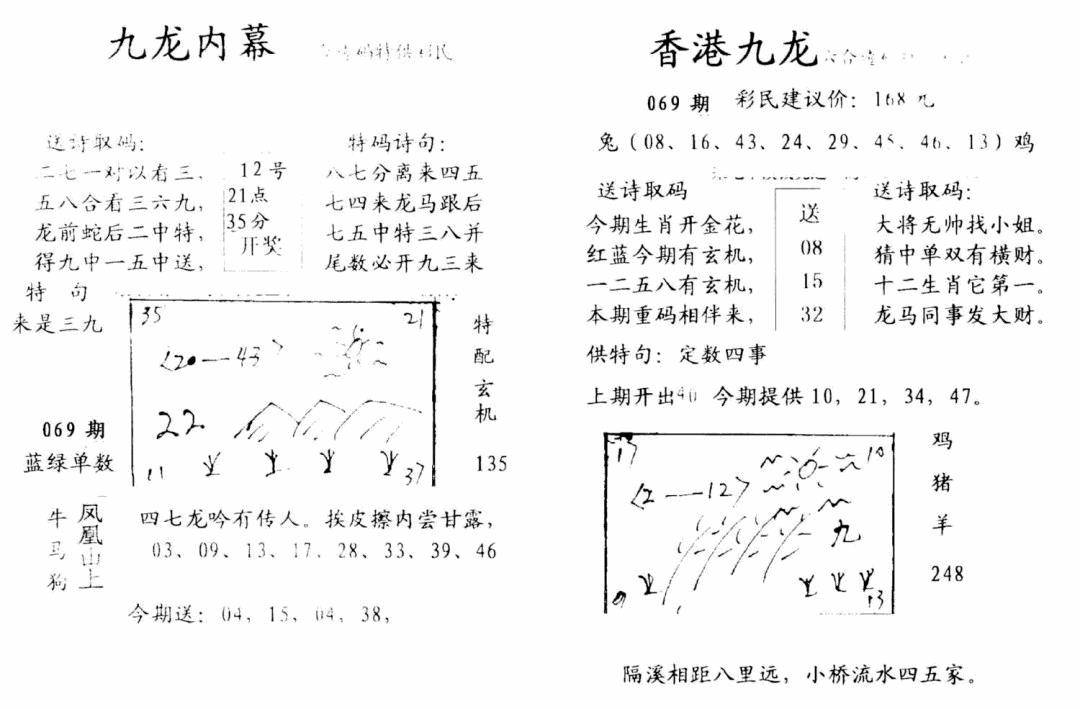 九龙内幕
送诗取码：
二七一对以看三，
五八合看三六九，
龙前蛇后二中特，
得九中一五中送，
12号
21点
35分
开奖
特码诗句：
八七分离来四五
七四来龙马跟后
七五中特三八并
尾数必开九三来
特 句
来是三九
35
21
22
11
37
特配玄机
135
069期
蓝绿单数
牛马狗
凤凰山上
四七龙吟有传人。挨皮擦内尝甘露，
03、09、13、17、28、33、39、46
今期送：04，15，04，38，
香港九龙
069期 彩民建议价：168元
兔（08、16、43、24、29、45、46、13）鸡
送诗取码
今期生肖开金花，
红蓝今期有玄机，
一二五八有玄机，
本期重码相伴来，
送
08
15
32
送诗取码：
大将无帅找小姐。
猜中单双有横财。
十二生肖它第一。
龙马同事发大财。
供特句：定数四事
上期开出40 今期提供10，21，34，47。
10
九
13
鸡
猪
羊
248
隔溪相距八里远，小桥流水四五家。